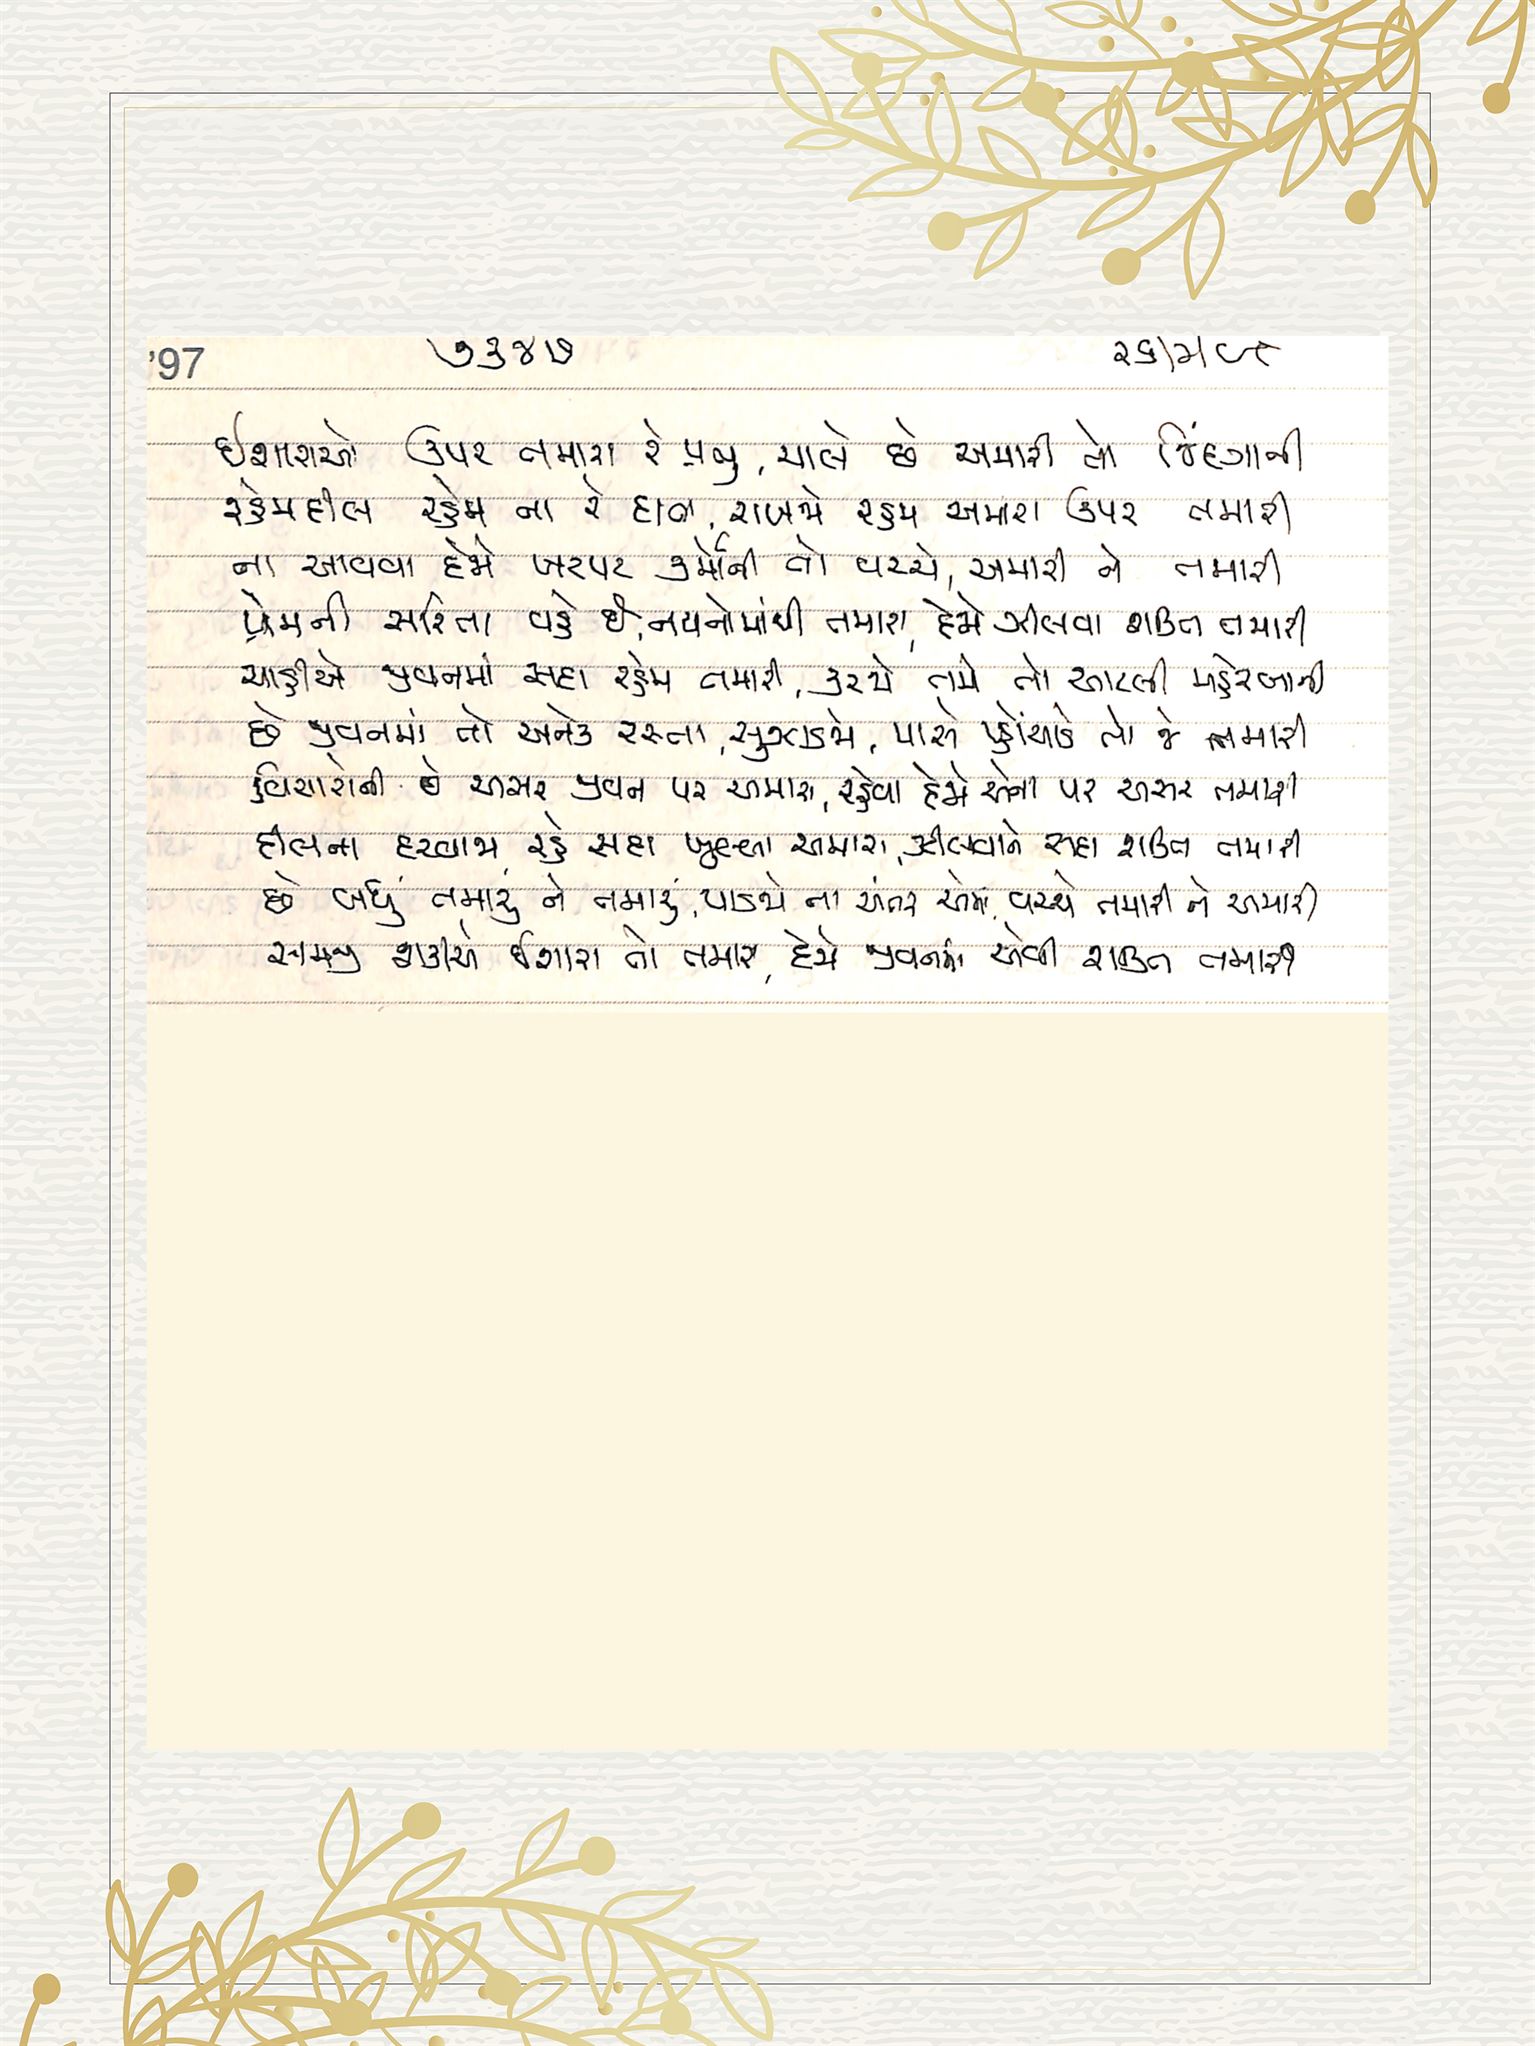 '97 ૭૩૪૭
ઈશારાઓ ઉપર તમારા રે પ્રભુ, ચાલે છે અમારી તો જિંદગાની
રહેમદીલ રહેમ ના રે હાલ, રાખજે રહેમ અમારા ઉપર તમારી
ના આવવા દેજે ખટપટ કર્મોની તો વચ્ચે, અમારી ને તમારી
પ્રેમની સરિતા વહે છે, નયનોમાંથી તમારા, દેજે ઝીલવા શક્તિ તમારી
ચાહીએ જીવનમાં સદા રહેમ તમારી, કરજે તમે તો આટલી મહેરબાની
છે જીવનમાં તો અનેક રસ્તા, સુઝાડજે, પાસે પહોંચાડે તો જે તમારી
વિચારોની છે અસર જીવન પર અમારા, રહેવા દેજે એના પર અસર તમારી
દીલના દરવાજા રહે સદા ખુલ્લા અમારા, ઝીલવાને સદા શક્તિ તમારી
છે બધું તમારું ને તમારું, પાડજે ના અંતર એમાં, વચ્ચે તમારી ને અમારી
સમજી શકીએ ઈશારા તો તમારા, દેજે જીવનમાં એવી શક્તિ તમારી